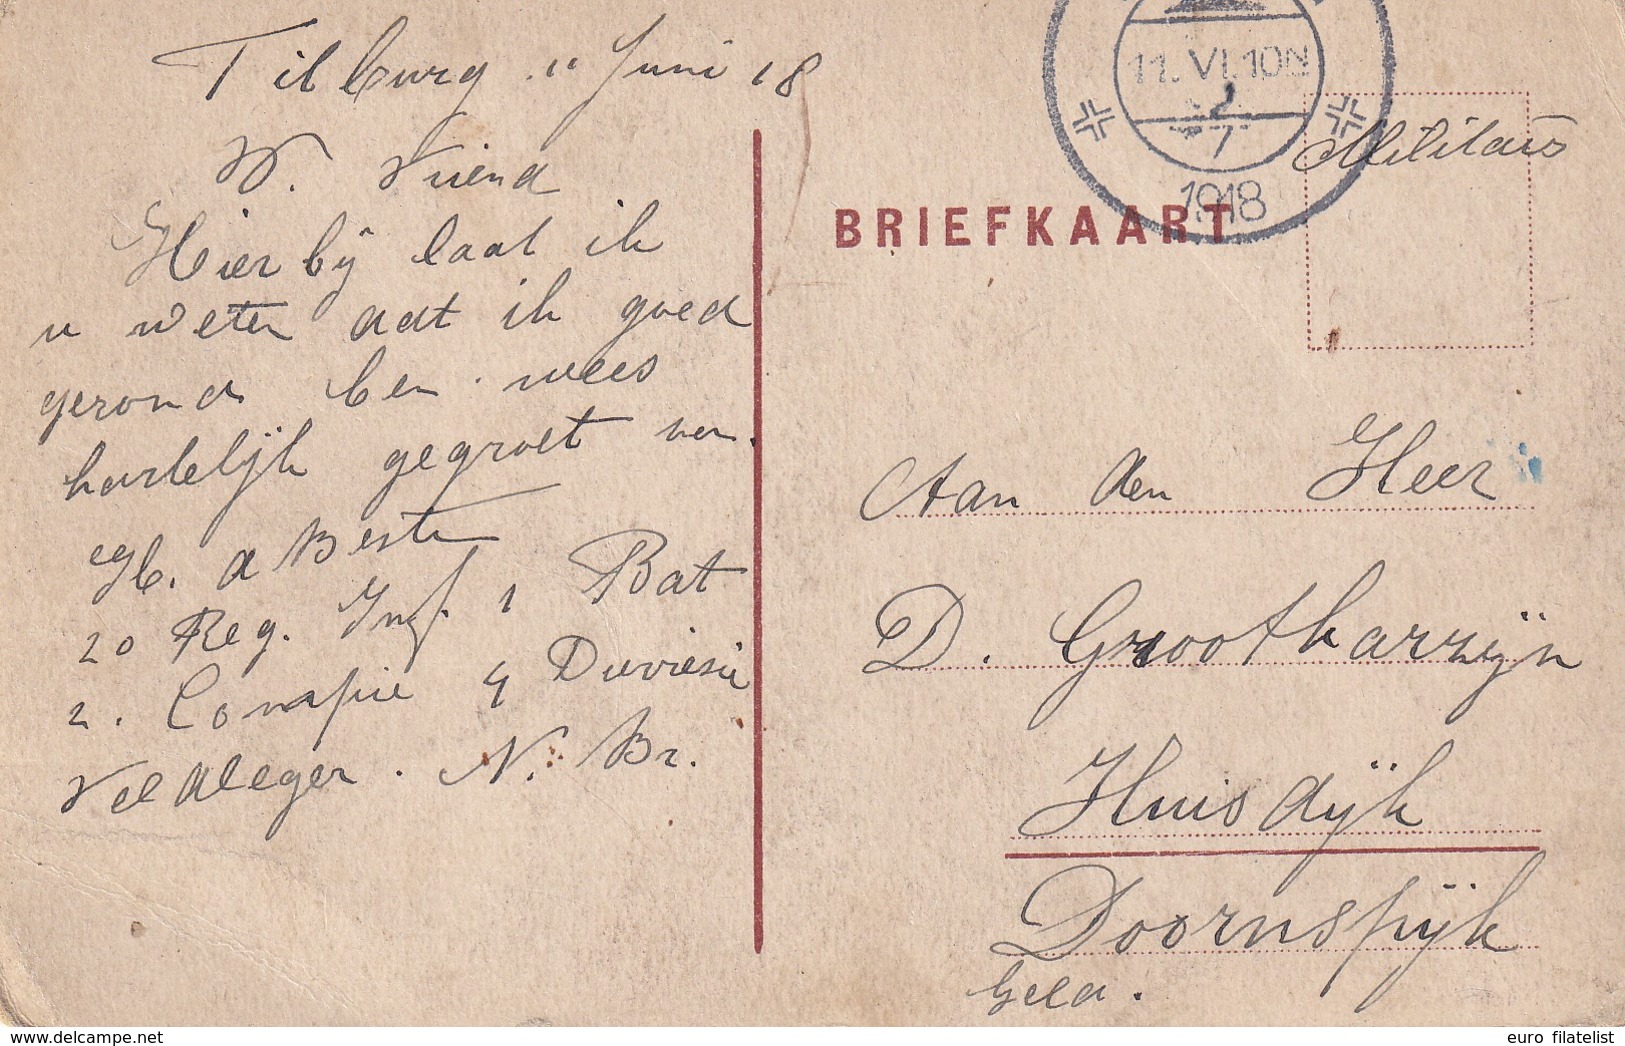 Tilburg 11 Juni 18
W. Vriend
Hierbij laat ik
u weten dat ik goed
gezond ben wees
hartelijk gegroet van
H. d Beste
20 Reg. Inf. 1 Bat
2. Compie 4 Divriesie
Veldleger. N. Br.
11.VI.10N
1918
Militair
BRIEFKAART
Aan den Heer
D. Grootkarzijn
Huisdijk
Doornspijk
Geld.
delcampe.net
euro filatelist